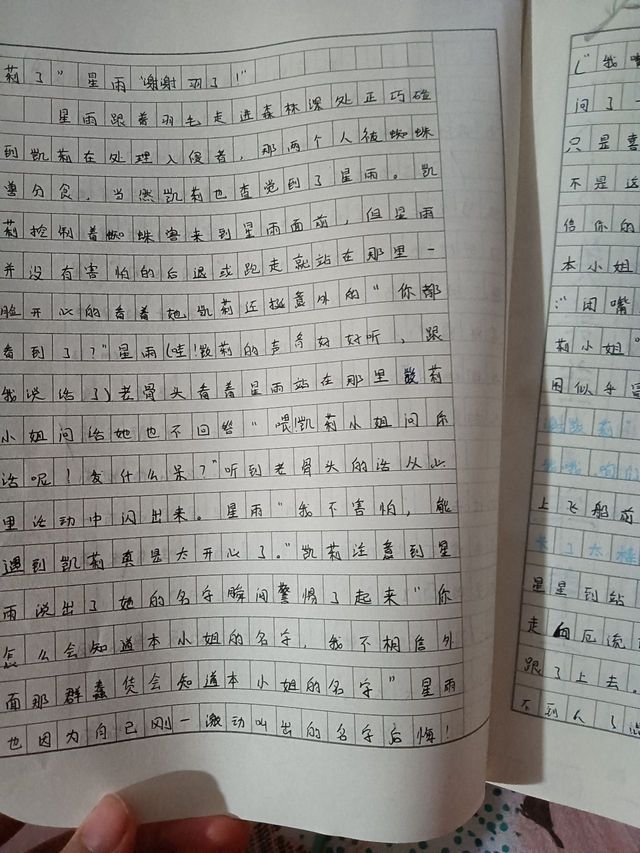 莉了”星雨“谢谢羽了!”
星雨跟着羽毛走进森林深处正巧碰
到凯莉在处理入侵者,那两个人被蜘蛛
分食,当然凯莉也查觉到了星雨。凯
莉控制着蜘蛛来到星雨面前,但星雨
并没有害怕的后退或跑走就站在那里一
脸开心的看着她凯莉还挺意外的“你都
看到了?”星雨(哇!凯莉的声音好好听,跟
我说话了)老骨头看着星雨站在那里凯莉
小姐问话她也不回答“喂!凯莉小姐问你
话呢!发什么呆?”听到老骨头的话从心
里活动中闪出来。星雨“我不害怕,能
遇到凯莉真是太开心了。”凯莉注意到星
雨说出了她的名字瞬间警惕了起来“你
怎么会知道本小姐的名字,我不相信外
面那群蠢货会知道本小姐的名字”星雨
也因为自己刚一激动叫出的名字后悔!
(“我嘴
问了一
只是喜
不是这
信你的
本小姐
:“闭嘴
莉小姐”
因似乎
上飞船前
星星到站
走向厄流
跟了上去。